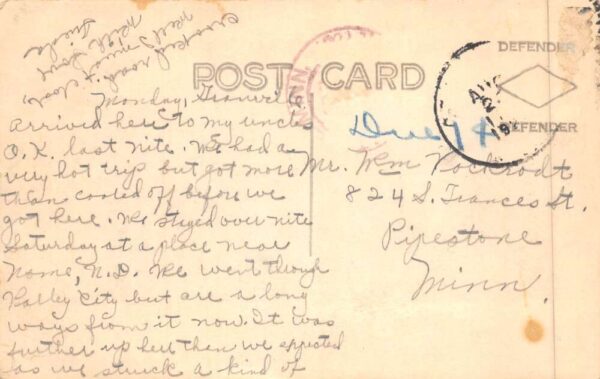 crooked road & clouds,
Well must
with
POST CARD
DEFENDER
DEFENDER
MINN
AUG
2
19
Due 1¢
Monday, Granville
Arrived here to my uncles
O.K. last nite. We had a
very hot trip but got more
than cooled off before we
got here. We stayed over nite
Saturday at a place near
Nome, N.D. We went through
Valley City but are a long
ways from it now. It was
further up here than we expected
as we struck a kind of
Mr. Wm Pockrodt
824 S. Frances St.
Pipestone
Minn.